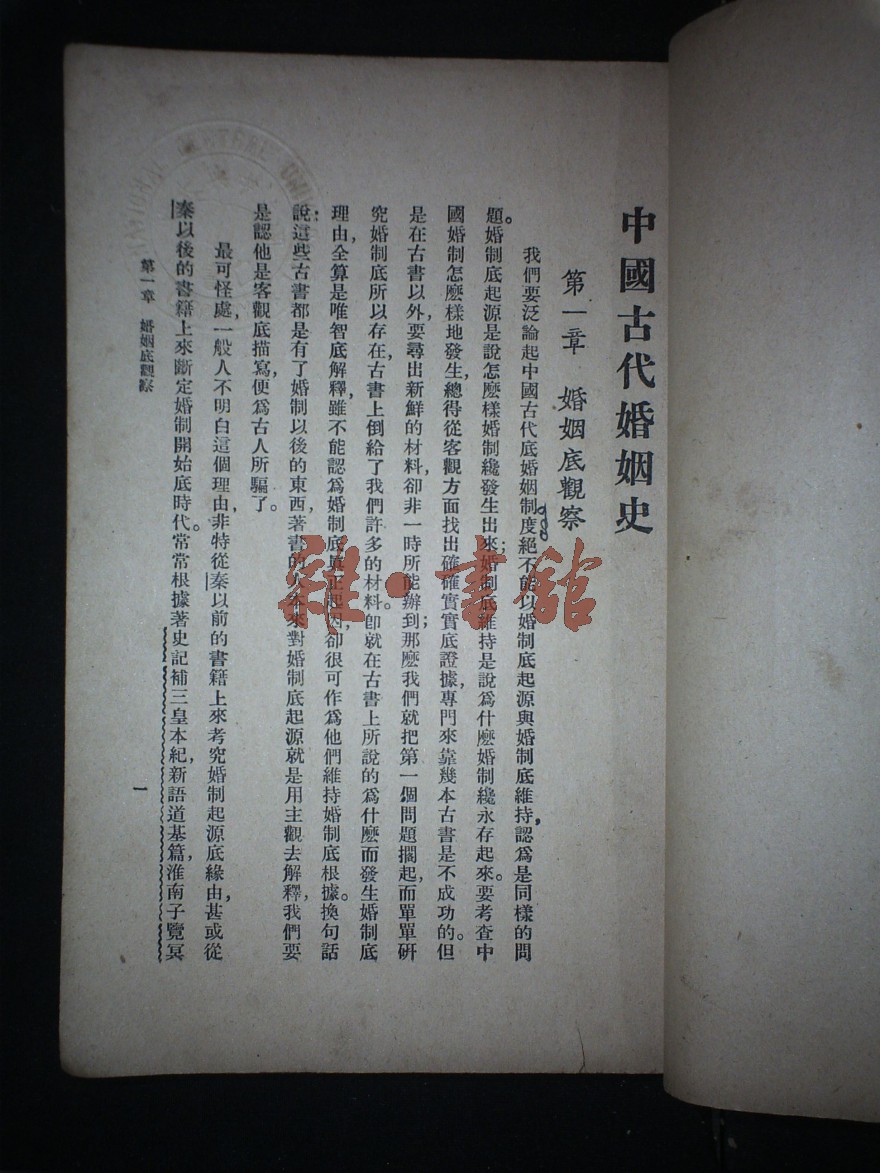 中國古代婚姻史
第一章 婚姻底觀察
我們要泛論起中國古代底婚姻制度絕不能以婚制底起源與婚制底維持，認爲是同樣的問
題。婚制底起源是說怎麽樣婚制纔發生出來；婚制底維持是說爲什麽婚制纔永存起來。要考查中
國婚制怎麽樣地發生，總得從客觀方面找出確確實實底證據，專門來靠幾本古書是不成功的。但
是在古書以外，要尋出新鮮的材料，卻非一時所能辦到；那麽我們就把第一個問題擱起，而單單研
究婚制底所以存在，古書上倒給了我們許多的材料。卽就在古書上所說的爲什麽而發生婚制底
理由，全算是唯智底解釋，雖不能認爲婚制底眞正起因，卻很可作爲他們維持婚制底根據。換句話
說：這些古書都是有了婚制以後的東西，著書的人本來對婚制底起源就是用主觀去解釋，我們要
是認他是客觀底描寫，便爲古人所騙了。
最可怪處，一般人不明白這個理由，非特從秦以前的書籍上來考究婚制起源底緣由，甚或從
秦以後的書籍上來斷定婚制開始底時代。常常根據著史記補三皇本紀，新語道基篇，淮南子覽冥
第一章 婚姻底觀察
一
雜·書館
NATIONAL CENTRAL UNI